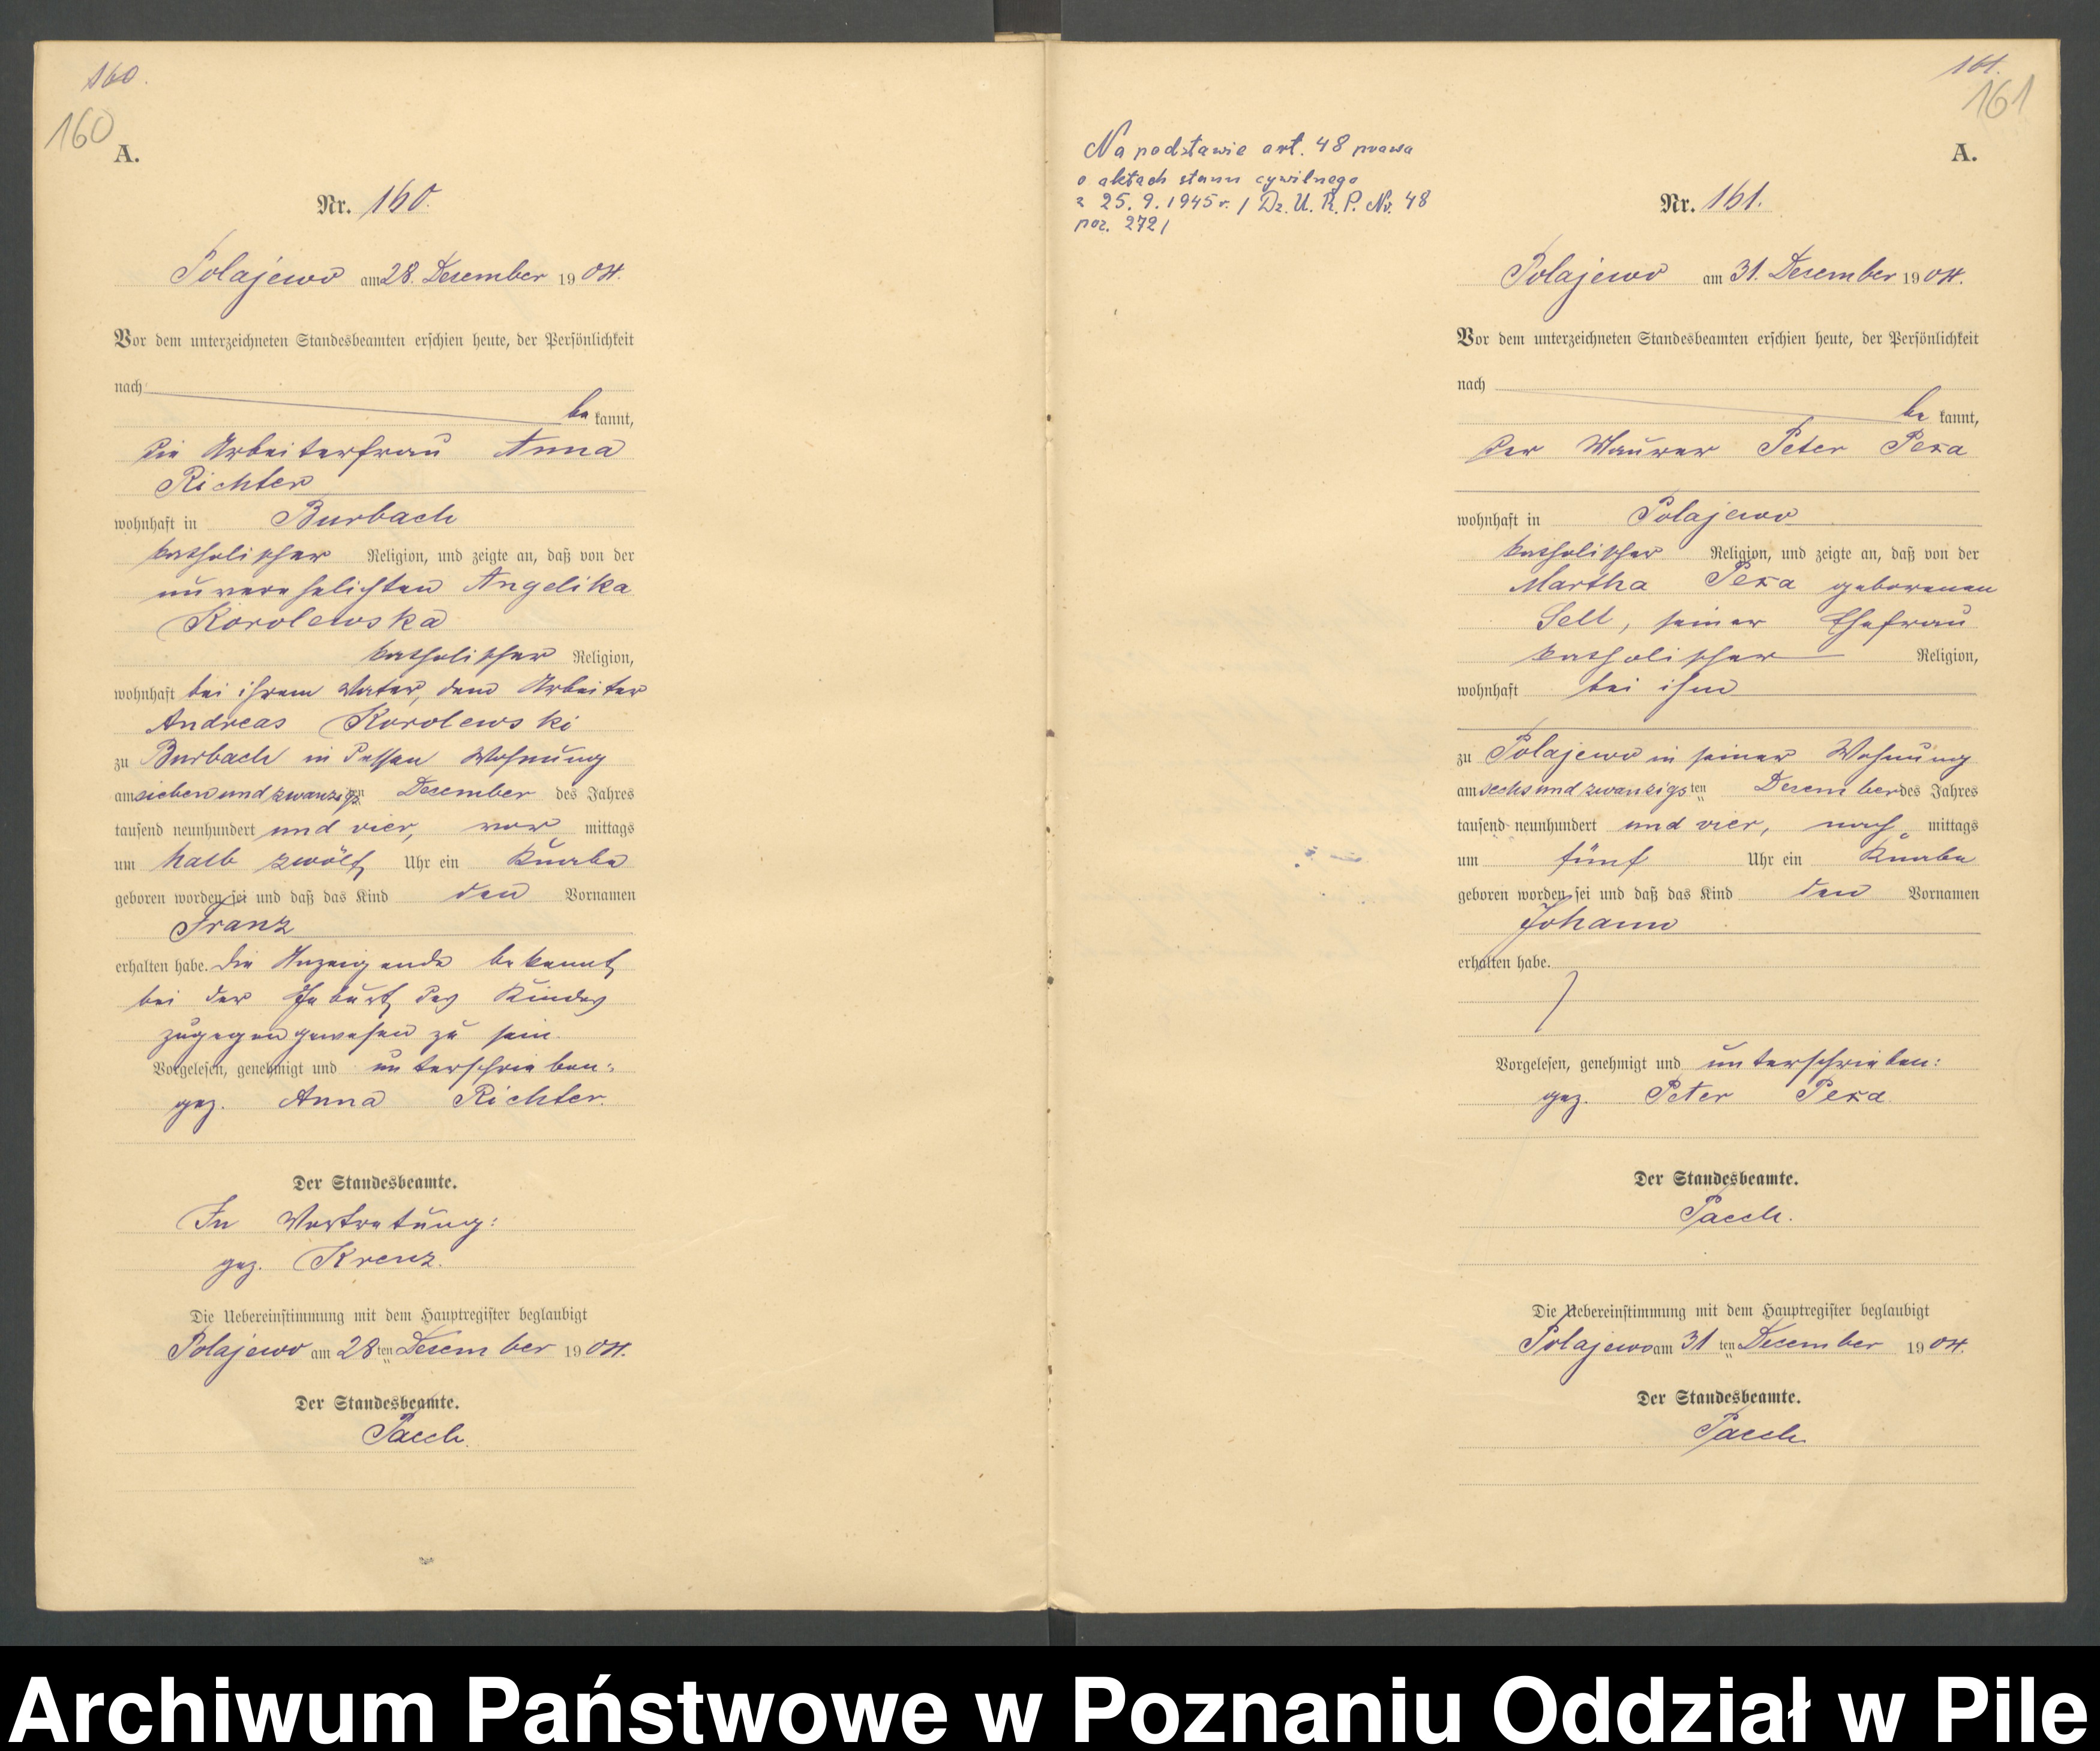 160.
160
A.
Nr. 160.
Polajewo am 28. Dezember 1904.
Vor dem unterzeichneten Standesbeamten erschien heute, der Persönlichkeit
nach
be kannt,
die Arbeiterfrau Anna
Richter
wohnhaft in Burbach
katholischer Religion, und zeigte an, daß von der
unverehelichten Angelika
Korolewska
katholischer Religion,
wohnhaft bei ihrem Vater, dem Arbeiter
Andreas Korolewski
zu Burbach in dessen Wohnung
am siebenundzwanzigsten Dezember des Jahres
tausend neunhundert und vier, vor mittags
um halb zwölf Uhr ein Knabe
geboren worden sei und daß das Kind den Vornamen
Franz
erhalten habe. Die Anzeigende bekennt,
bei der Geburt des Kindes
zugegen gewesen zu sein.
Vorgelesen, genehmigt und unterschrieben:
gez. Anna Richter.
Der Standesbeamte.
In Vertretung:
gez. Krenz.
Die Uebereinstimmung mit dem Hauptregister beglaubigt
Polajewo am 28 ten Dezember 1904.
Der Standesbeamte.
Pacch.
161.
161
Na podstawie art. 48 prawa
o aktach stanu cywilnego
z 25. 9. 1945 r. / Dz. U. R. P. Nr. 48
poz. 272 /
A.
Nr. 161.
Polajewo am 31. Dezember 1904.
Vor dem unterzeichneten Standesbeamten erschien heute, der Persönlichkeit
nach
be kannt,
der Maurer Peter Pexa
wohnhaft in Polajewo
katholischer Religion, und zeigte an, daß von der
Martha Pexa geborenen
Sell, seiner Ehefrau
katholischer Religion,
wohnhaft bei ihm
zu Polajewo in seiner Wohnung
am sechsundzwanzigsten Dezember des Jahres
tausend neunhundert und vier, nach mittags
um fünf Uhr ein Knabe
geboren worden sei und daß das Kind den Vornamen
Johann
erhalten habe.
Vorgelesen, genehmigt und unterschrieben:
gez. Peter Pexa
Der Standesbeamte.
Pacch.
Die Uebereinstimmung mit dem Hauptregister beglaubigt
Polajewo am 31 ten Dezember 1904.
Der Standesbeamte.
Pacch
Archiwum Państwowe w Poznaniu Oddział w Pile